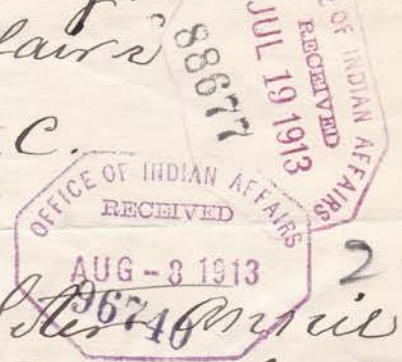 fairs
C.
OFFICE OF INDIAN AFFAIRS
RECEIVED
JUL 19 1913
88677
OFFICE OF INDIAN AFFAIRS
RECEIVED
AUG - 8 1913
96740
2
Annie